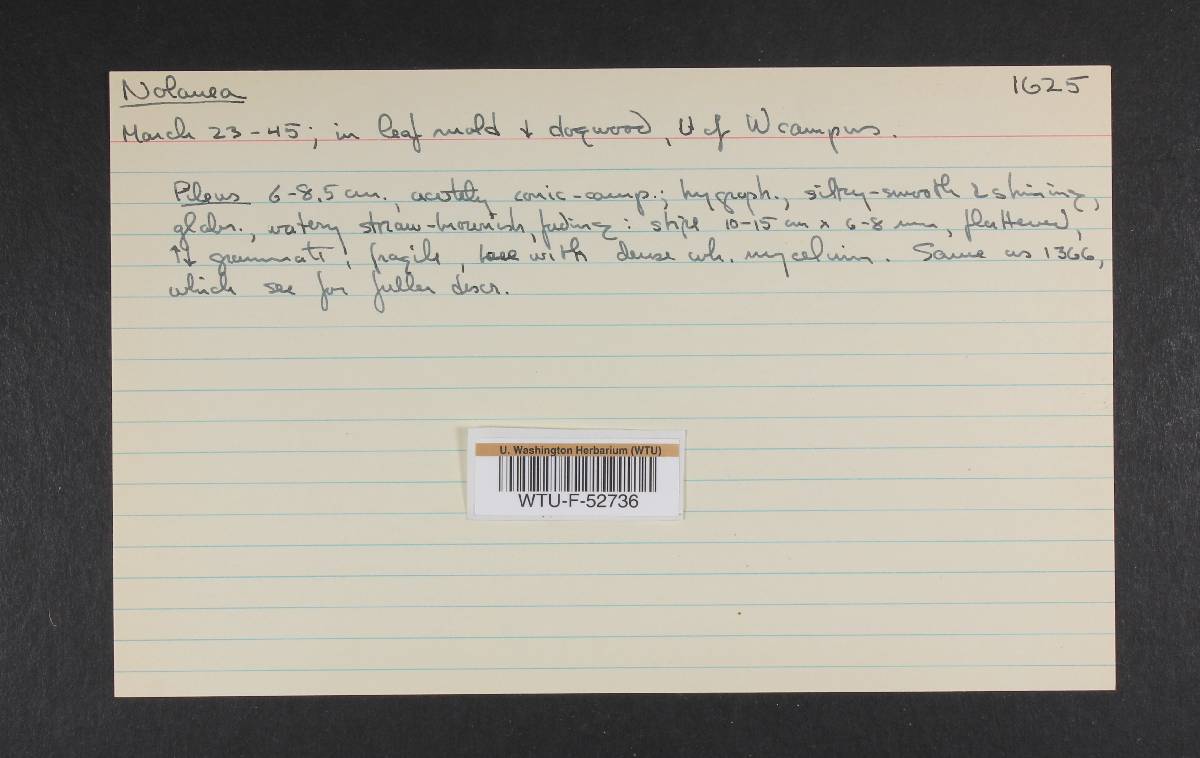 Nolanea 1625
March 23-45; in leaf mold ↓ dogwood, U of W campus.
Pileus 6-8.5 cm., acutely conic-camp.; hygroph., silky-smooth & shining,
glabr., watery straw-brownish, fading: stipe 10-15 cm x 6-8 mm, flattened,
↑↓ grammate, fragile, base with dense wh. mycelium. Same as 1366,
which see for fuller descr.
U. Washington Herbarium (WTU)
WTU-F-52736